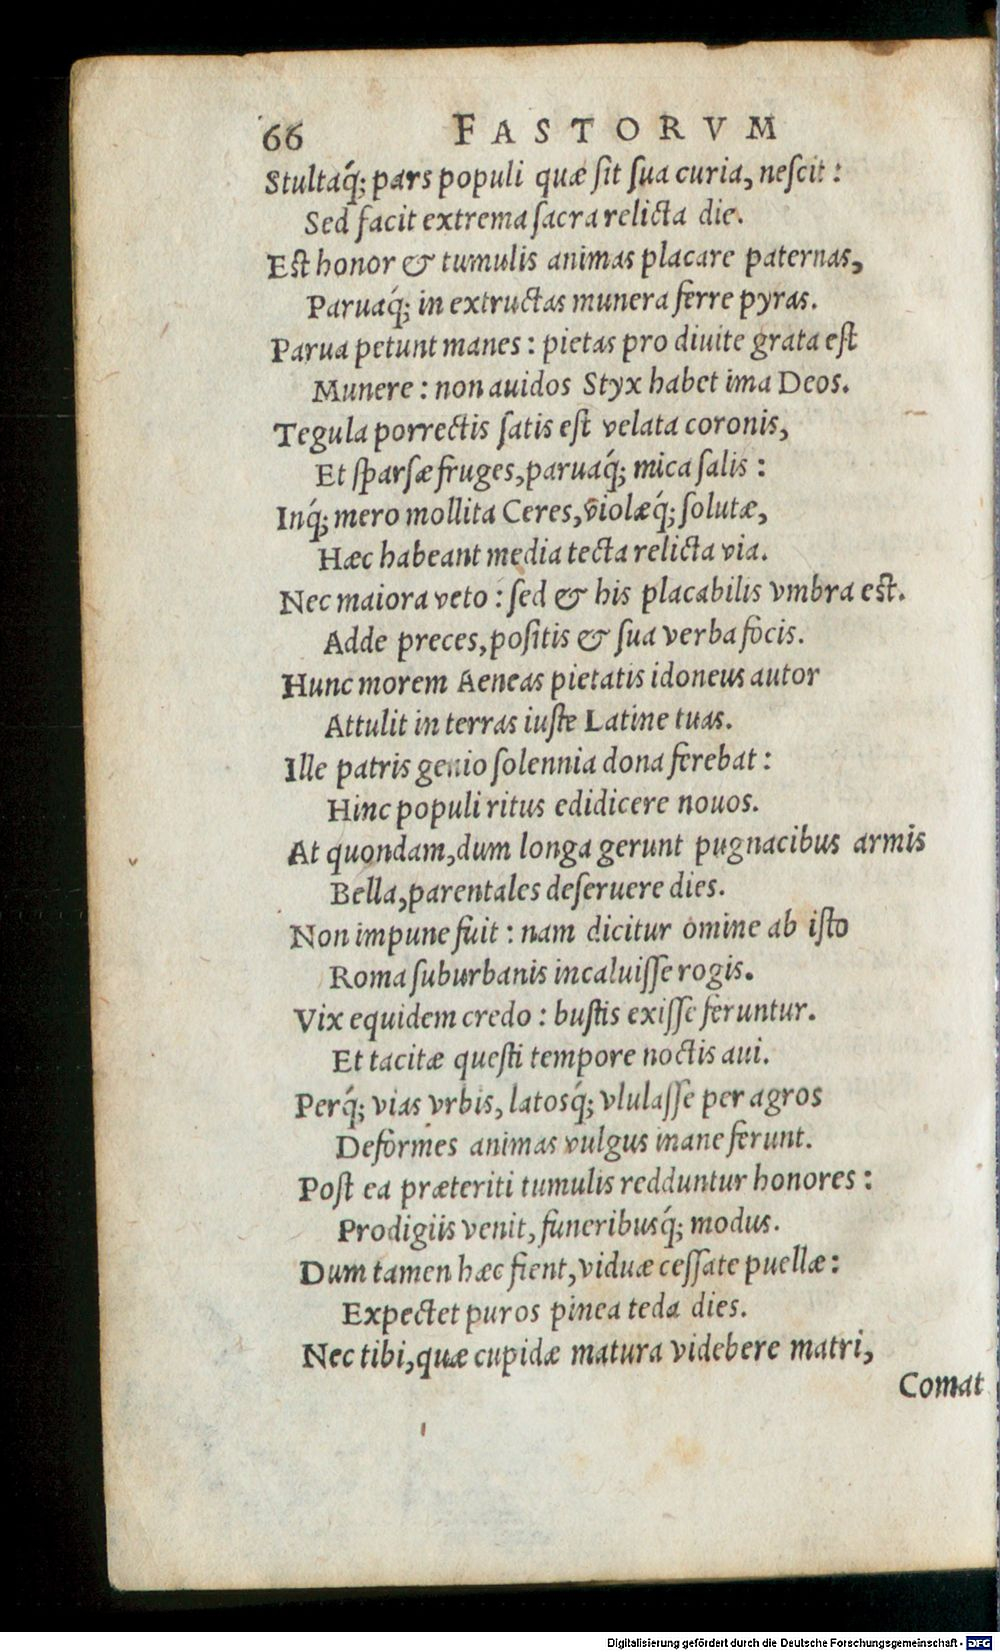 66 FASTORVM
Stultaq́; pars populi quæ ſit ſua curia, neſcit :
Sed facit extrema ſacra relicta die.
Est honor & tumulis animas placare paternas,
Paruaq́; in extructas munera ferre pyras.
Parua petunt manes : pietas pro diuite grata eſt
Munere : non auidos Styx habet ima Deos.
Tegula porrectis ſatis eſt velata coronis,
Et ſparſæ fruges, paruaq́; mica ſalis :
Inq́; mero mollita Ceres, violæq́; ſolutæ,
Hæc habeant media tecta relicta via.
Nec maiora veto : ſed & his placabilis vmbra est.
Adde preces, poſitis & ſua verba focis.
Hunc morem Aeneas pietatis idoneus autor
Attulit in terras iuſte Latine tuas.
Ille patris genio ſolennia dona ferebat :
Hinc populi ritus edidicere nouos.
At quondam, dum longa gerunt pugnacibus armis
Bella, parentales deſeruere dies.
Non impune fuit : nam dicitur omine ab iſto
Roma ſuburbanis incaluiſſe rogis.
Vix equidem credo : buſtis exiſſe feruntur.
Et tacitæ queſti tempore noctis aui.
Perq́; vias vrbis, latosq́; vlulaſſe per agros
Deformes animas vulgus inane ferunt.
Poſt ea præteriti tumulis redduntur honores :
Prodigiis venit, funeribusq́; modus.
Dum tamen hæc fient, viduæ ceſſate puellæ :
Expectet puros pinea teda dies.
Nec tibi, quæ cupidæ matura videbere matri,
Comat
Digitalisierung gefördert durch die Deutsche Forschungsgemeinschaft - DFG